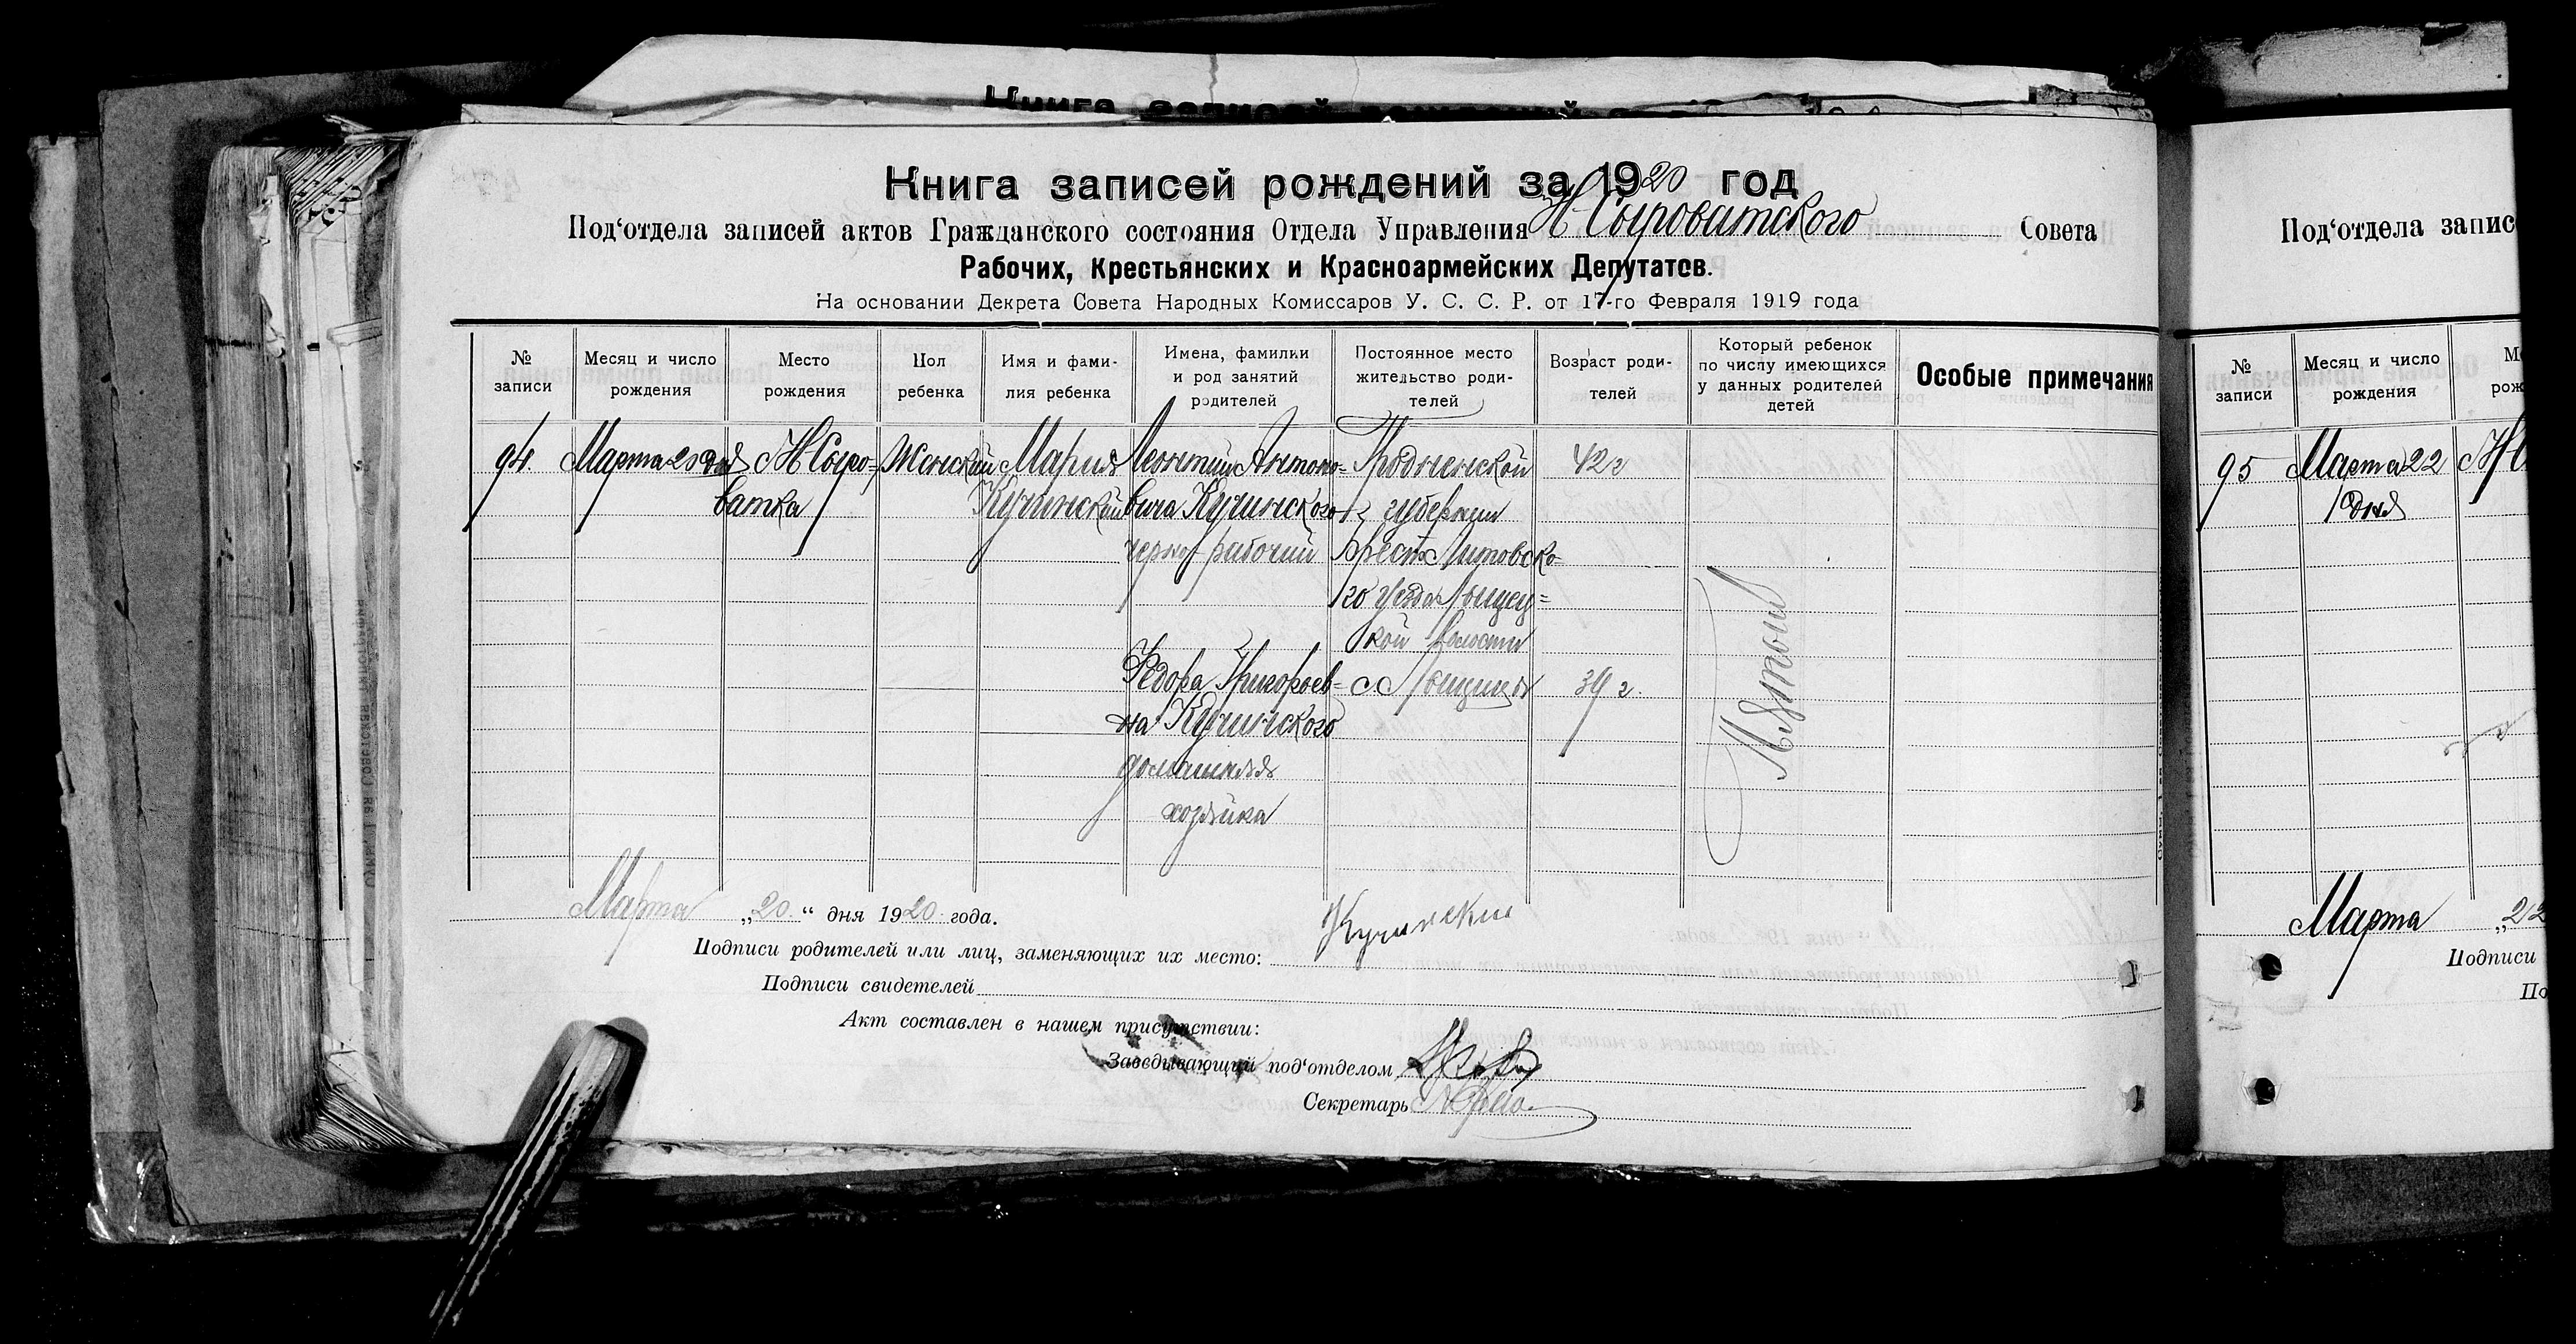 Книга записей рождений за 1920 год
Под‘отдела записей актов Гражданского состояния Отдела Управления Н Сыроватского Совета
Рабочих, Крестьянских и Красноармейских Депутатов.
На основании Декрета Совета Народных Комиссаров У. С. С. Р. от 17-го Февраля 1919 года
№ записи
Месяц и число рождения
Место рождения
Пол ребенка
Имя и фами-
лия ребенка
Имена, фамилии
и род занятий
родителей
Постоянное место
жительство роди-
телей
Возраст роди-
телей
Который ребенок
по числу имеющихся
у данных родителей
детей
Особые примечания
94
Марта 20 дня
Н Сыро-
ватка
Женский
Мария
Кучинская
Леонтий Антоно-
вича Кучинского
черно-рабочий
Гродненской
губернии
Брест Литовско-
го уезда
кой волости
42 г
Федора Григорьев-
на Кучинского
домашняя
хозяйка
39 г.
Пятый
Марта „20“ дня 1920 года.
Подписи родителей или лиц, заменяющих их место: Кучинский
Подписи свидетелей
Акт составлен в нашем присутствии:
Заведывающий под‘отделом
Секретарь
Под‘отдела запис
№
записи
Месяц и число
рождения
95
Марта 22
дня
Марта „22
Подписи